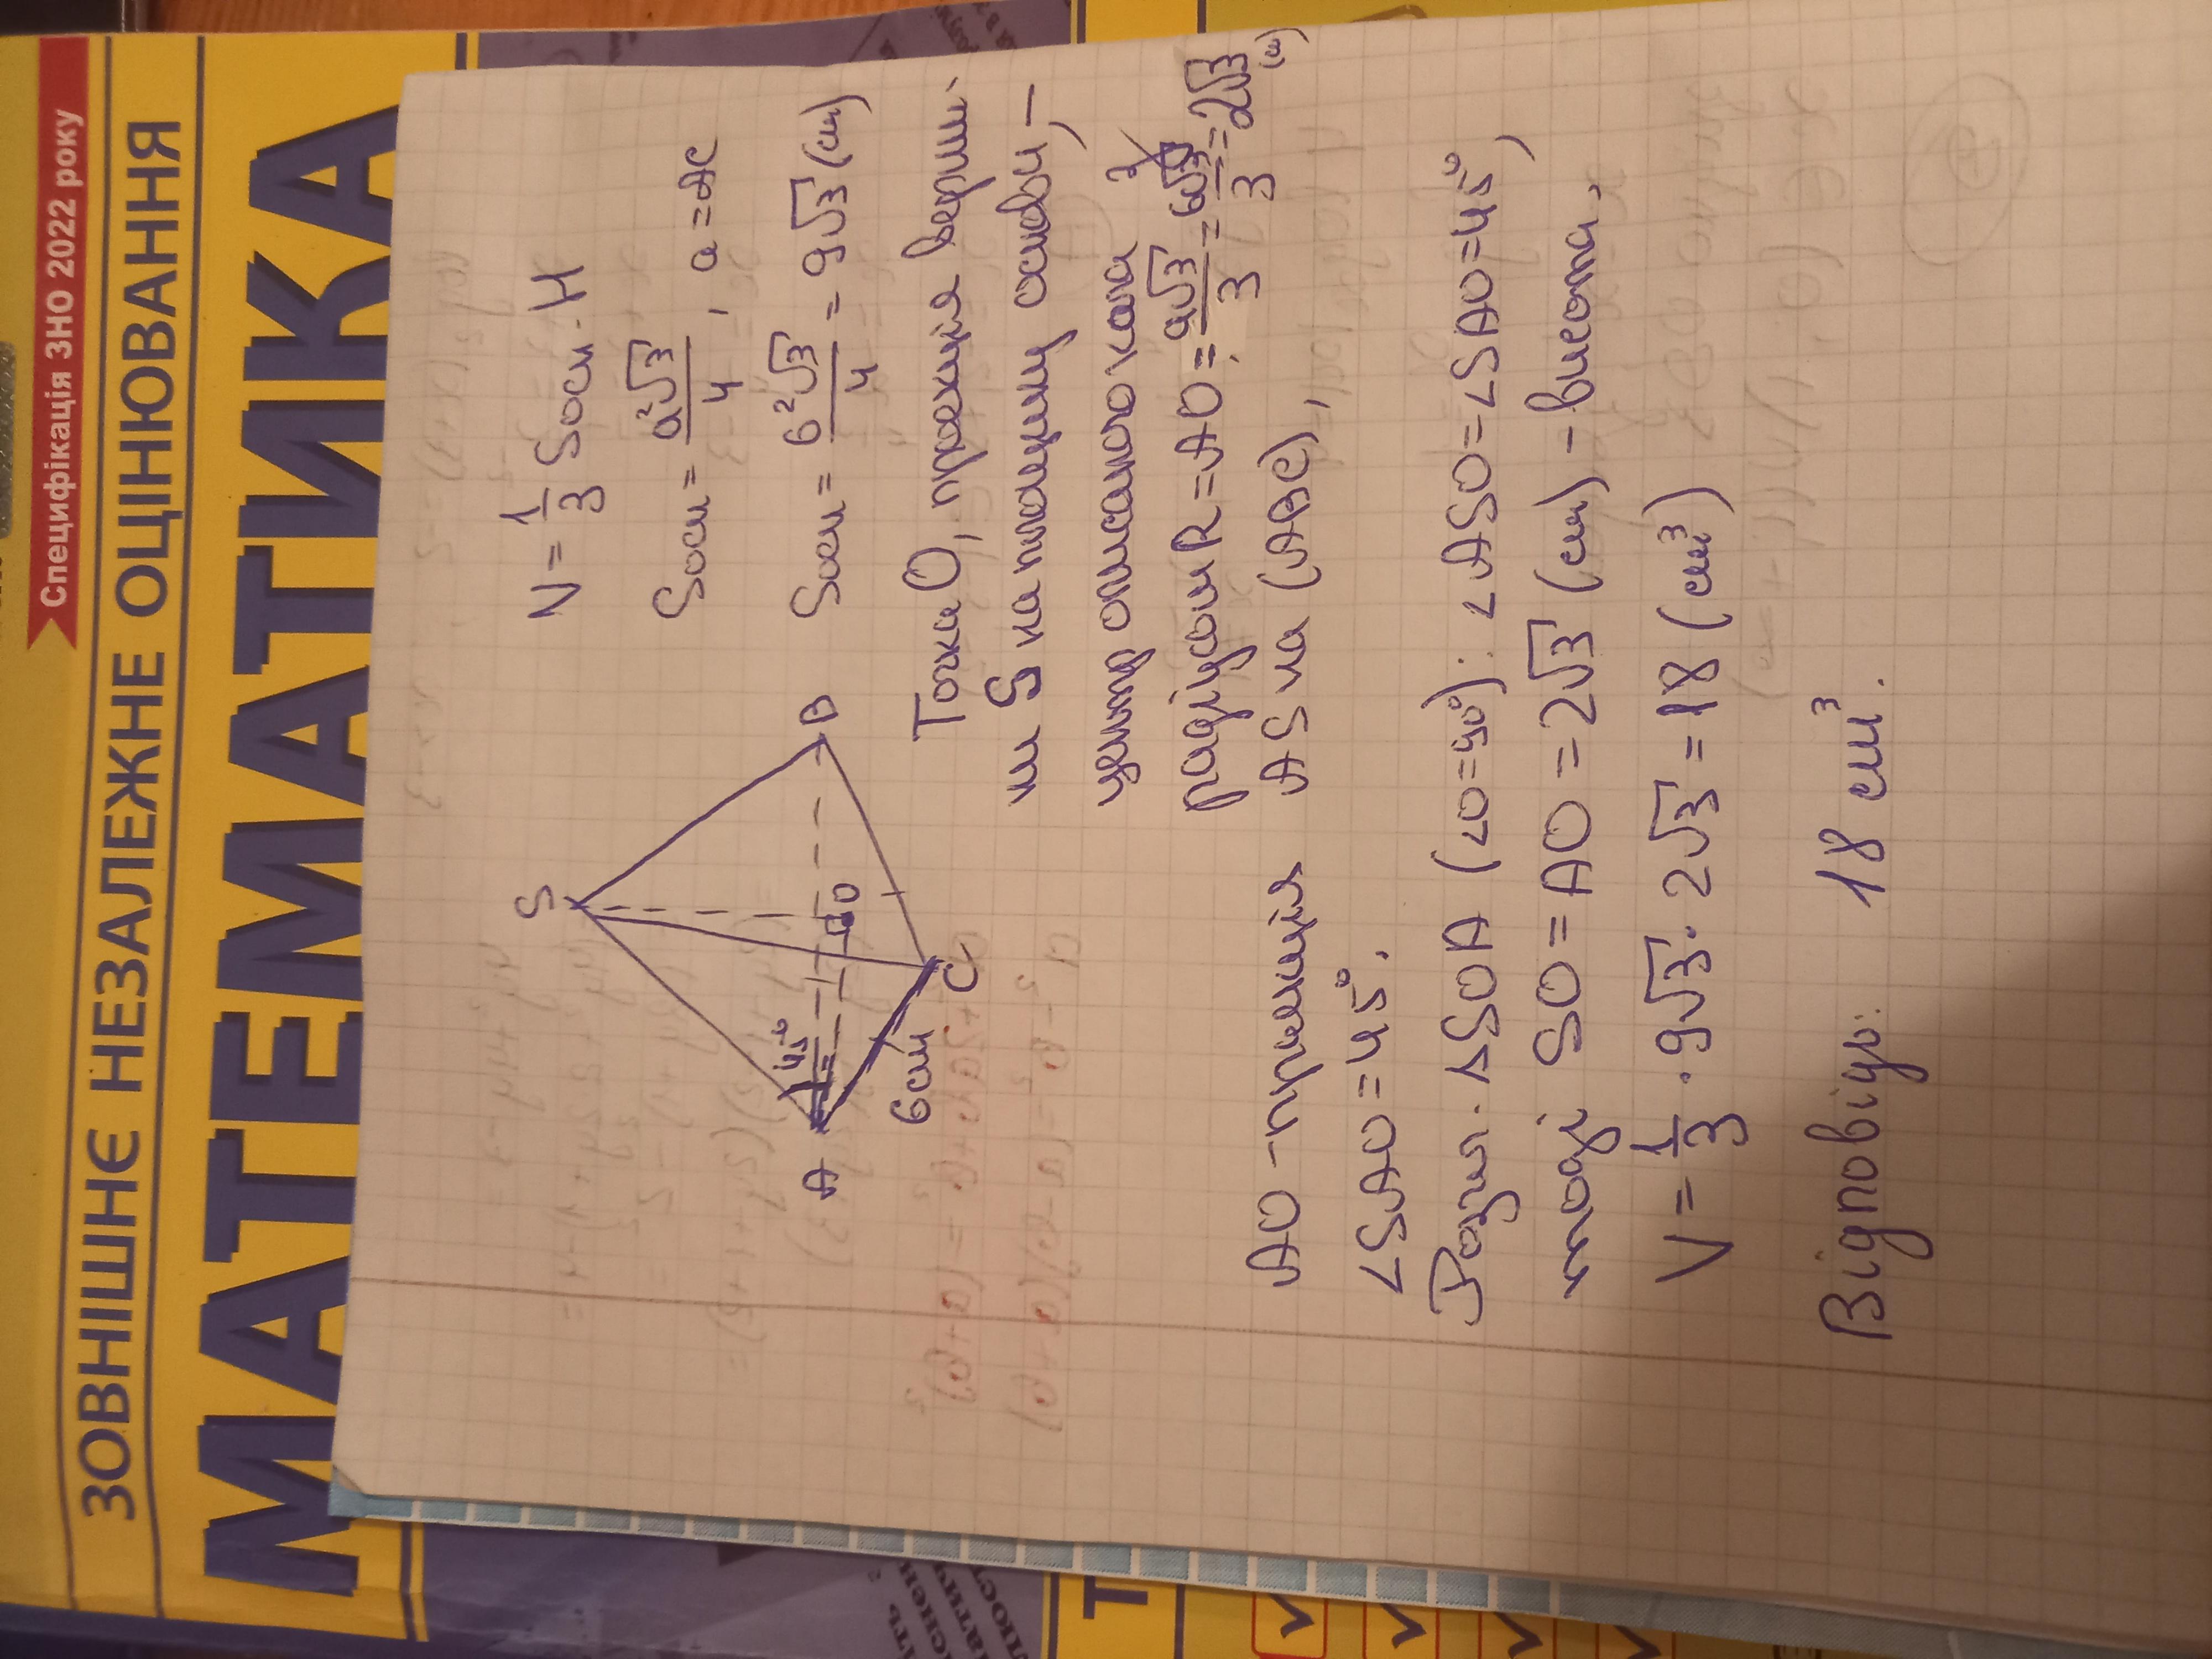 Специфікація ЗНО 2022 року
ЗОВНІШНЄ НЕЗАЛЕЖНЕ ОЦІНЮВАННЯ
МАТЕМАТИКА
S
A
B
C
O
45°
6 см
V = 1/3 Sосн · H
Sосн = a²√3/4, a = AC
Sосн = 6²√3/4 = 9√3 (см)
Точка O, проекція верши-
ни S на площину основи, –
центр описаного кола
радіусом R = AO = a√3/3 = 6√3/3 = 2√3 (см)
AO – проекція AS на (ABC),
∠SAO = 45°.
Розгл. ΔSOA (∠O = 90°): ∠ASO = ∠SAO = 45°,
тоді SO = AO = 2√3 (см) – висота.
V = 1/3 · 9√3 · 2√3 = 18 (см³)
Відповідь: 18 см³.